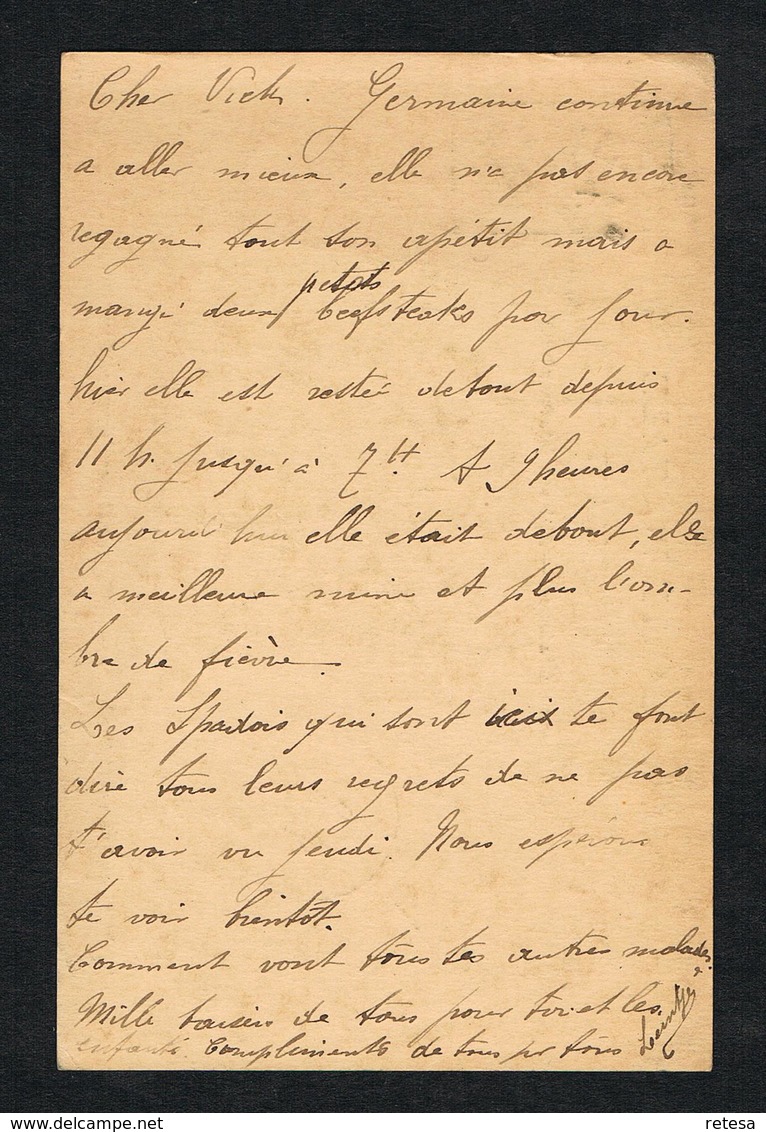 Cher Vick. Germaine continue
a aller mieux, elle n'a pas encore
regagné tout son apétit mais a
petits
mangé deux beefsteaks par jour.
hier elle est restée debout depuis
11 h. jusqu'à 7 H. A 9 heures
aujourd'hui elle était debout, elle
a meilleure mine et plus l'om-
bre de fièvre.
Les Spadois qui sont ici te font
dire tous leurs regrets de ne pas
t'avoir vu jeudi. Nous espérons
te voir bientôt.
Comment vont tous tes autres malades?
Mille baisers de tous pour toi et les
enfants. Compliments de tous pr tous
www.delcampe.net
retesa